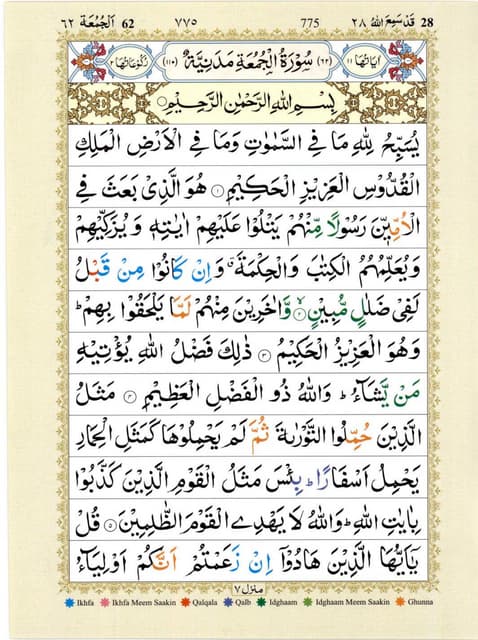 62 اَلْجُمُعَة ٦٢ ٧٧٥ 775 قَدْ سَمِعَ اللّٰهُ ٢٨ 28
اٰيَاتُهَا ١١ (٦٢) سُوْرَةُ الْجُمُعَةِ مَدَنِيَّةٌ (١١٠) رُكُوْعَاتُهَا ٢
بِسْمِ اللّٰهِ الرَّحْمٰنِ الرَّحِيْمِ
يُسَبِّحُ لِلّٰهِ مَا فِي السَّمٰوٰتِ وَمَا فِي الْاَرْضِ الْمَلِكِ
الْقُدُّوْسِ الْعَزِيْزِ الْحَكِيْمِ ۝١ هُوَ الَّذِيْ بَعَثَ فِي
الْاُمِّيّٖنَ رَسُوْلًا مِّنْهُمْ يَتْلُوْا عَلَيْهِمْ اٰيٰتِهٖ وَيُزَكِّيْهِمْ
وَيُعَلِّمُهُمُ الْكِتٰبَ وَالْحِكْمَةَ ۗ وَاِنْ كَانُوْا مِنْ قَبْلُ
لَفِيْ ضَلٰلٍ مُّبِيْنٍ ۝٢ وَّاٰخَرِيْنَ مِنْهُمْ لَمَّا يَلْحَقُوْا بِهِمْ ؕ
وَهُوَ الْعَزِيْزُ الْحَكِيْمُ ۝٣ ذٰلِكَ فَضْلُ اللّٰهِ يُؤْتِيْهِ
مَنْ يَّشَآءُ ؕ وَاللّٰهُ ذُو الْفَضْلِ الْعَظِيْمِ ۝٤ مَثَلُ
الَّذِيْنَ حُمِّلُوا التَّوْرٰىةَ ثُمَّ لَمْ يَحْمِلُوْهَا كَمَثَلِ الْحِمَارِ
يَحْمِلُ اَسْفَارًا ؕ بِئْسَ مَثَلُ الْقَوْمِ الَّذِيْنَ كَذَّبُوْا
بِاٰيٰتِ اللّٰهِ ؕ وَاللّٰهُ لَا يَهْدِي الْقَوْمَ الظّٰلِمِيْنَ ۝٥ قُلْ
يٰۤاَيُّهَا الَّذِيْنَ هَادُوْۤا اِنْ زَعَمْتُمْ اَنَّكُمْ اَوْلِيَآءُ
منزل ٧
Ikhfa Ikhfa Meem Saakin Qalqala Qalb Idghaam Idghaam Meem Saakin Ghunna